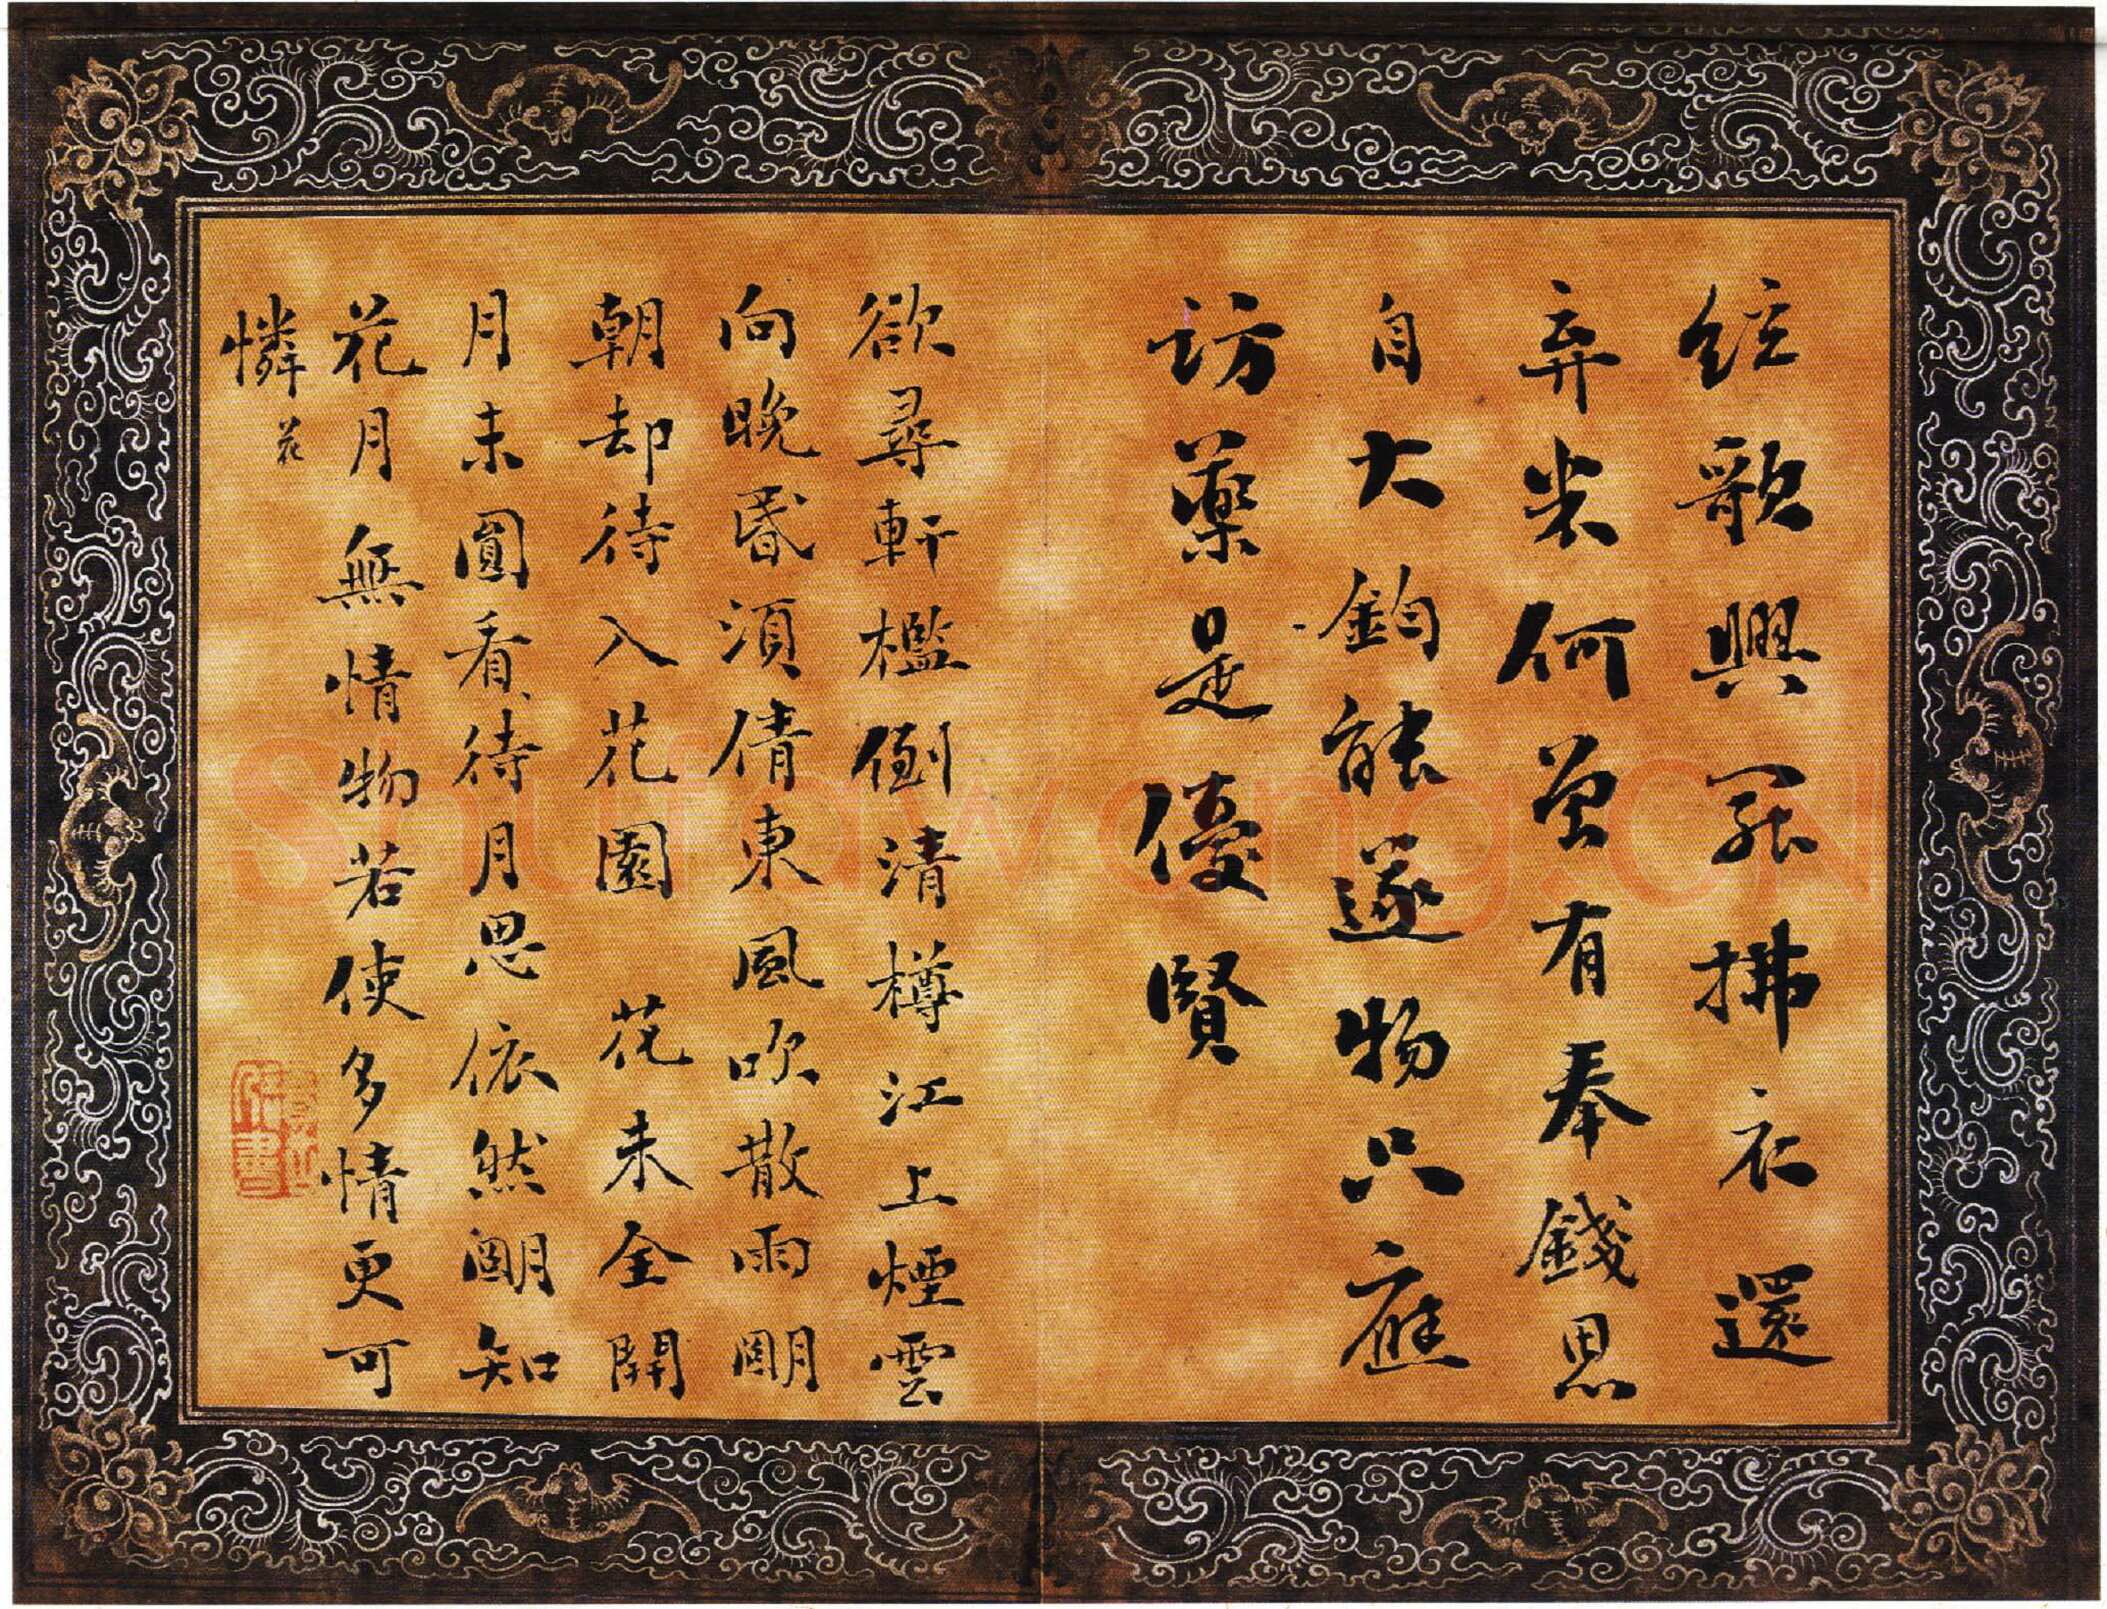 絃歌興罷拂衣還
弃米何曾有奉錢思
自大鈞能遂物只應
訪藥是優賢
欲尋軒檻倒清樽江上煙雲
向晚昏須倩東風吹散雨明
朝却待入花園 花未全開
月未圓看待月思依然明知
花月無情物若使多情更可
憐 花
Shufawang.CN